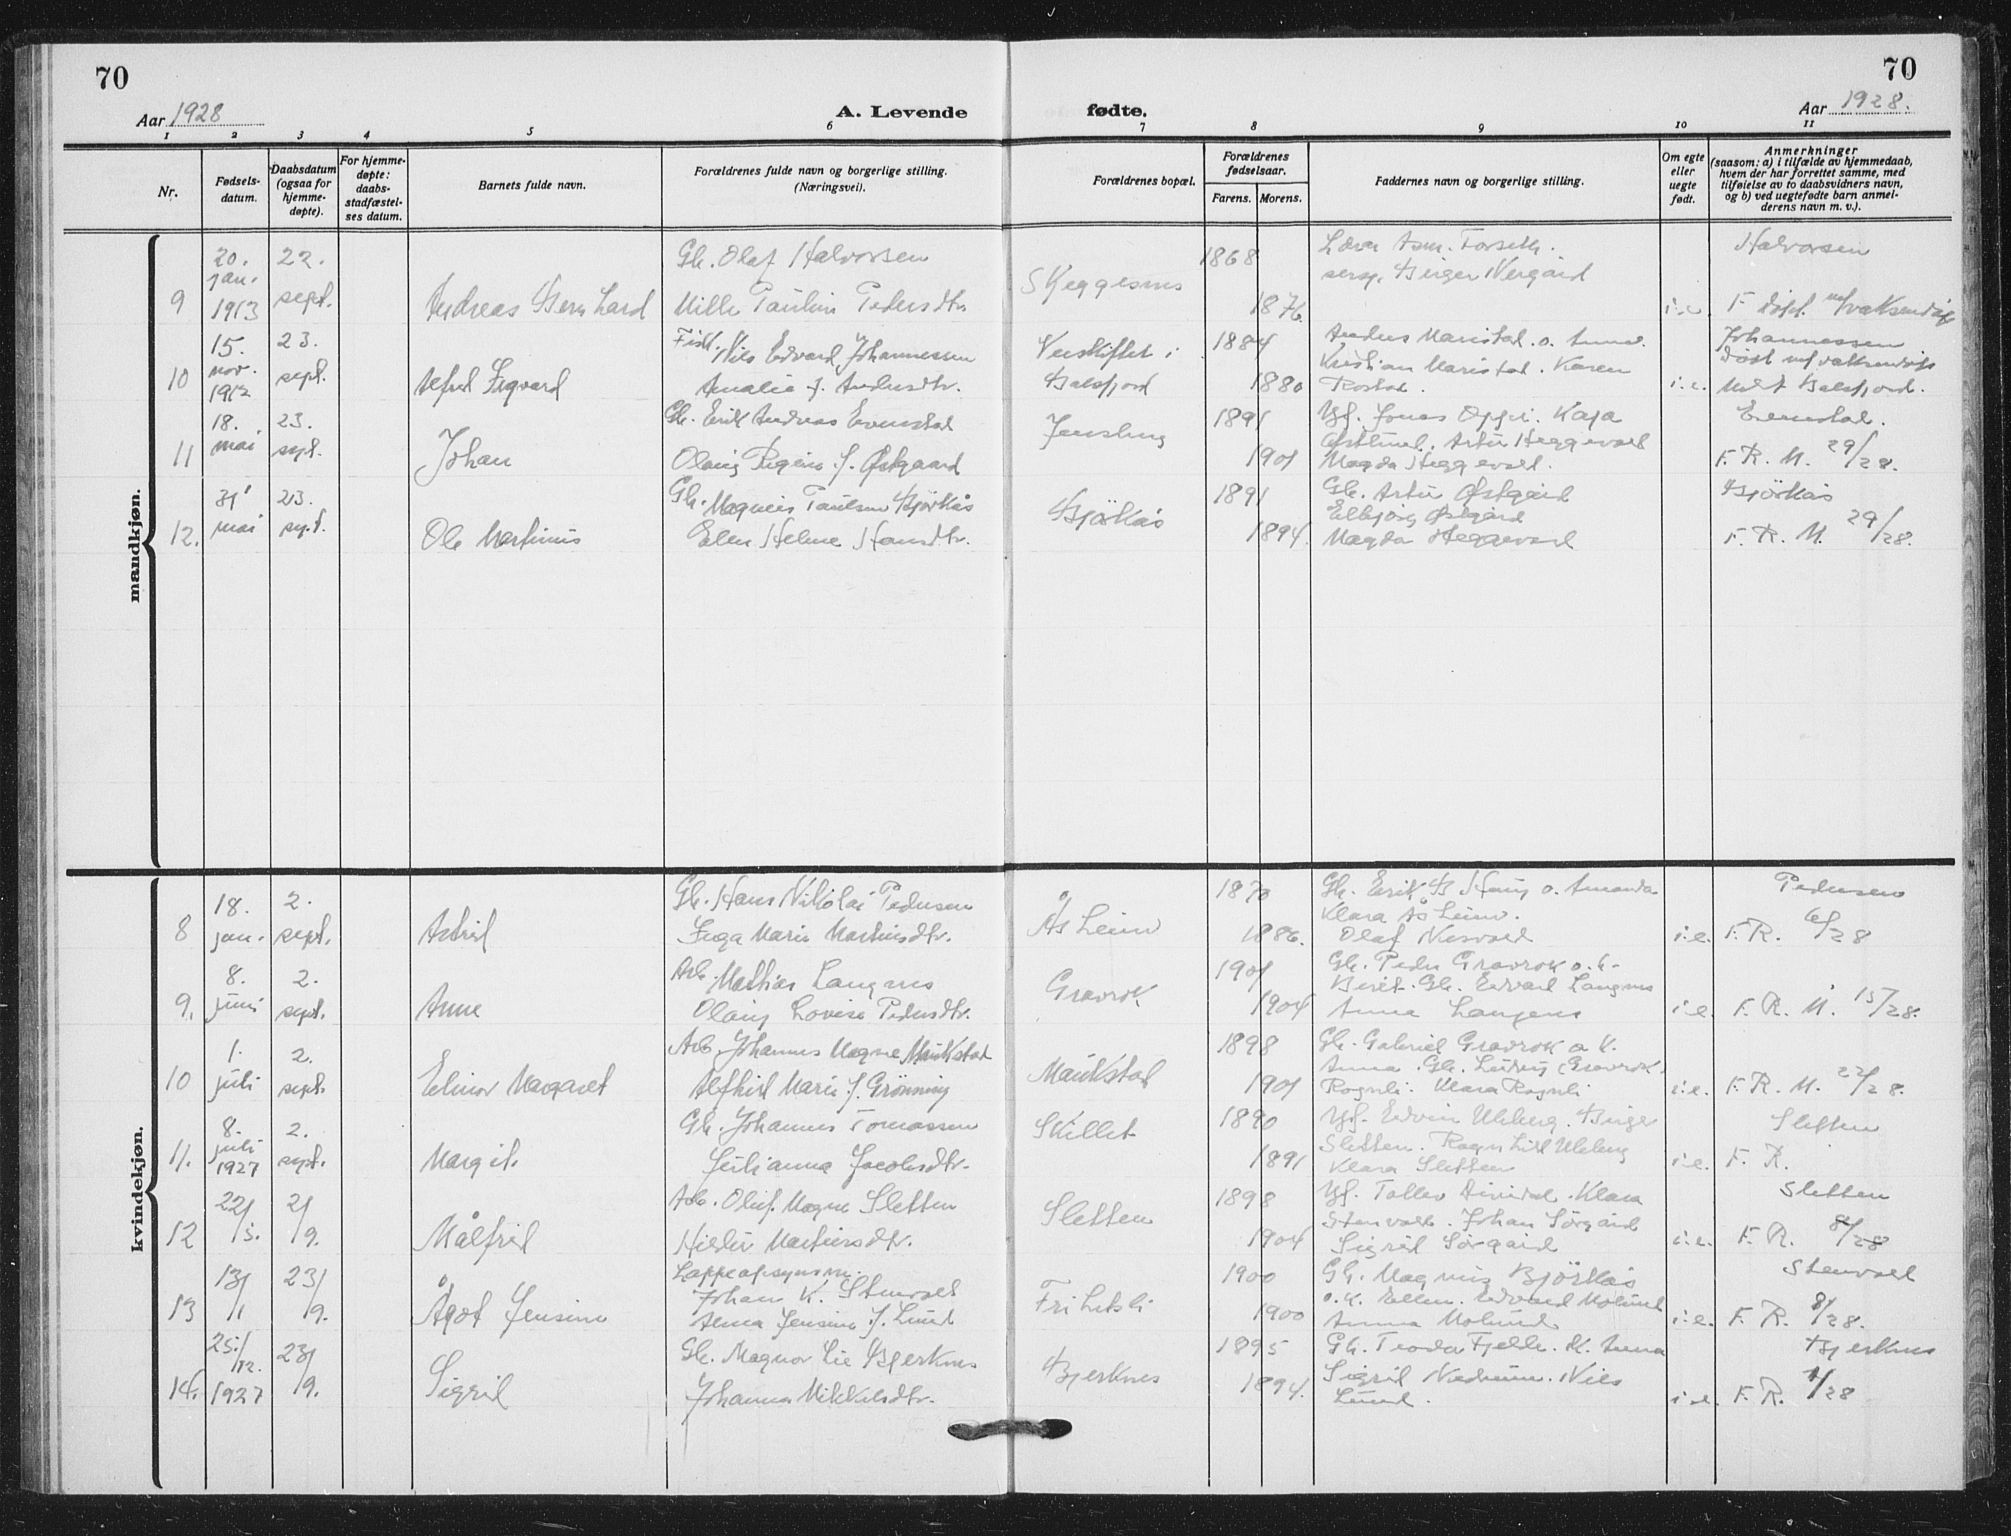 70
70
Aar 1928
A. Levende
fødte.
Aar 1928.
1 2 3 4 5 6 7 8 9 10 11
Nr.
Fødsels-
datum.
Daabsdatum
(ogsaa for
hjemme-
døpte).
For hjemme-
døpte:
daabs-
stadfæstel-
ses datum.
Barnets fulde navn.
Forældrenes fulde navn og borgerlige stilling.
(Næringsvei).
Forældrenes bopæl.
Forældrenes
fødselsaar.
Farens. Morens.
Faddernes navn og borgerlige stilling.
Om egte
eller
uegte
født.
Anmerkninger
(saasom: a) i tilfælde av hjemmedaab,
hvem der har forrettet samme, med
tilføielse av to daabsvidners navn,
og b) ved uegtefødte barn anmel-
derens navn m. v.).
mandkjøn.
20. 22. Gb. Olaf Halvorsen 1868 Lærer Asm. Forseth. Halvorsen
jan. sept. Skeggesnes sersj. Birger Nergård
9 1913 Andreas Bernhard Mille Pauline Pedersdtr. 1876. F. døpt
15. 23. Fisk. Nils Edvard Johannessen 1884 Anders Maristad. o. Anna. Johannessen
nov. Balsfjord Kristian Maristad. Karen
10 1912 sept. Alfred Sigvard Amalie f. Andersdtr. 1880 Rostad. i.e. Balsfjord.
18. 23. Gb. Erik Andreas Evenstad 1891 Ugf. Jonas Oppei. Kaja Evenstad.
mai sept. Østlund. Artur Heggevold
11 Johan Olaug Regine f. Østgaard 1901 Magda Heggevold. F. R. M. 29/28.
31 23. Gb. Magnus Paulsen Björkås 1891 Gb. Artur Østgård Björkås
mai sept. Björkås Elbjørg Østgård
12. Ole Martinus Ellen Helene Hansdtr. 1894. Magda Heggevold F. R. M. 29/28.
kvindekjøn.
18. 2. Gb. Hans Nikolai Pedersen 1870 Gb. Erik B Haug o. Amanda Pedersen
Åsheim Klara Åsheim.
8 jan. sept. Astrid Inga Marie Martinsdtr. 1886. Olaf Nesvold i.e. F.R. 6/28
8. 2. Arb. Mathias Langnes 1901 Gb. Peder Gravrok o. k.
Gravrok Berit. Gb. Edvard Langnes
9. juni sept. Anne Olaug Lovise Pedersdtr. 1904 Anna Langnes i.e. F. R. M. 15/28.
1. 2. Arb. Johannes Magne Maukstad 1898 Gb. Gabriel Gravrok o. k.
Maukstad Anna. Gb. Ludvig Gravrok.
10 juli sept. Elinor Margaret Alfhild Marie f. Grønning 1901 Rognli. Klara Rognli i.e. F. R. M. 22/28.
8. 2. Gb. Johannes Tomassen 1890 Ugf. Edvin Uleberg. Birger Sletten
juli Skillet Sletten. Ragnhild Uleberg
11. 1927 sept. Margit. Julianna Jacobsdtr. 1891 Klara Sletten i.e. F. R.
22/ 2/ Arb. Oluf Magne Sletten 1898 Ugf. Tollev Divida. Klara Sletten
Sletten Stenvold. Johan Sørgård
12 5. 9. Målfrid Hildur Martinsdtr. 1904 Sigrid Sørgård i.e. F. R. 8/28
13/ 23/ Lappeopsynsm. 1900 Gb. Magnus Björkås Stenvold
Johan K. Stenvold Frihetsli o.k. Ellen. Edvard Molund
13 1 9. Ågot Jensine Anna Jensine f. Lund 1900 Anna Molund i.e. F. R. 8/28.
25/ 23/ Gb. Magnor Lie Bjerknes 1895 Gb. Teodor Fjelde. K. Anna Bjerknes
12. Bjerknes Sigrid Nedrum. Nils
14. 1927 9. Sigrid Johanna Mikkelsdtr. 1894. Lund. i.e. F. R. 1/28